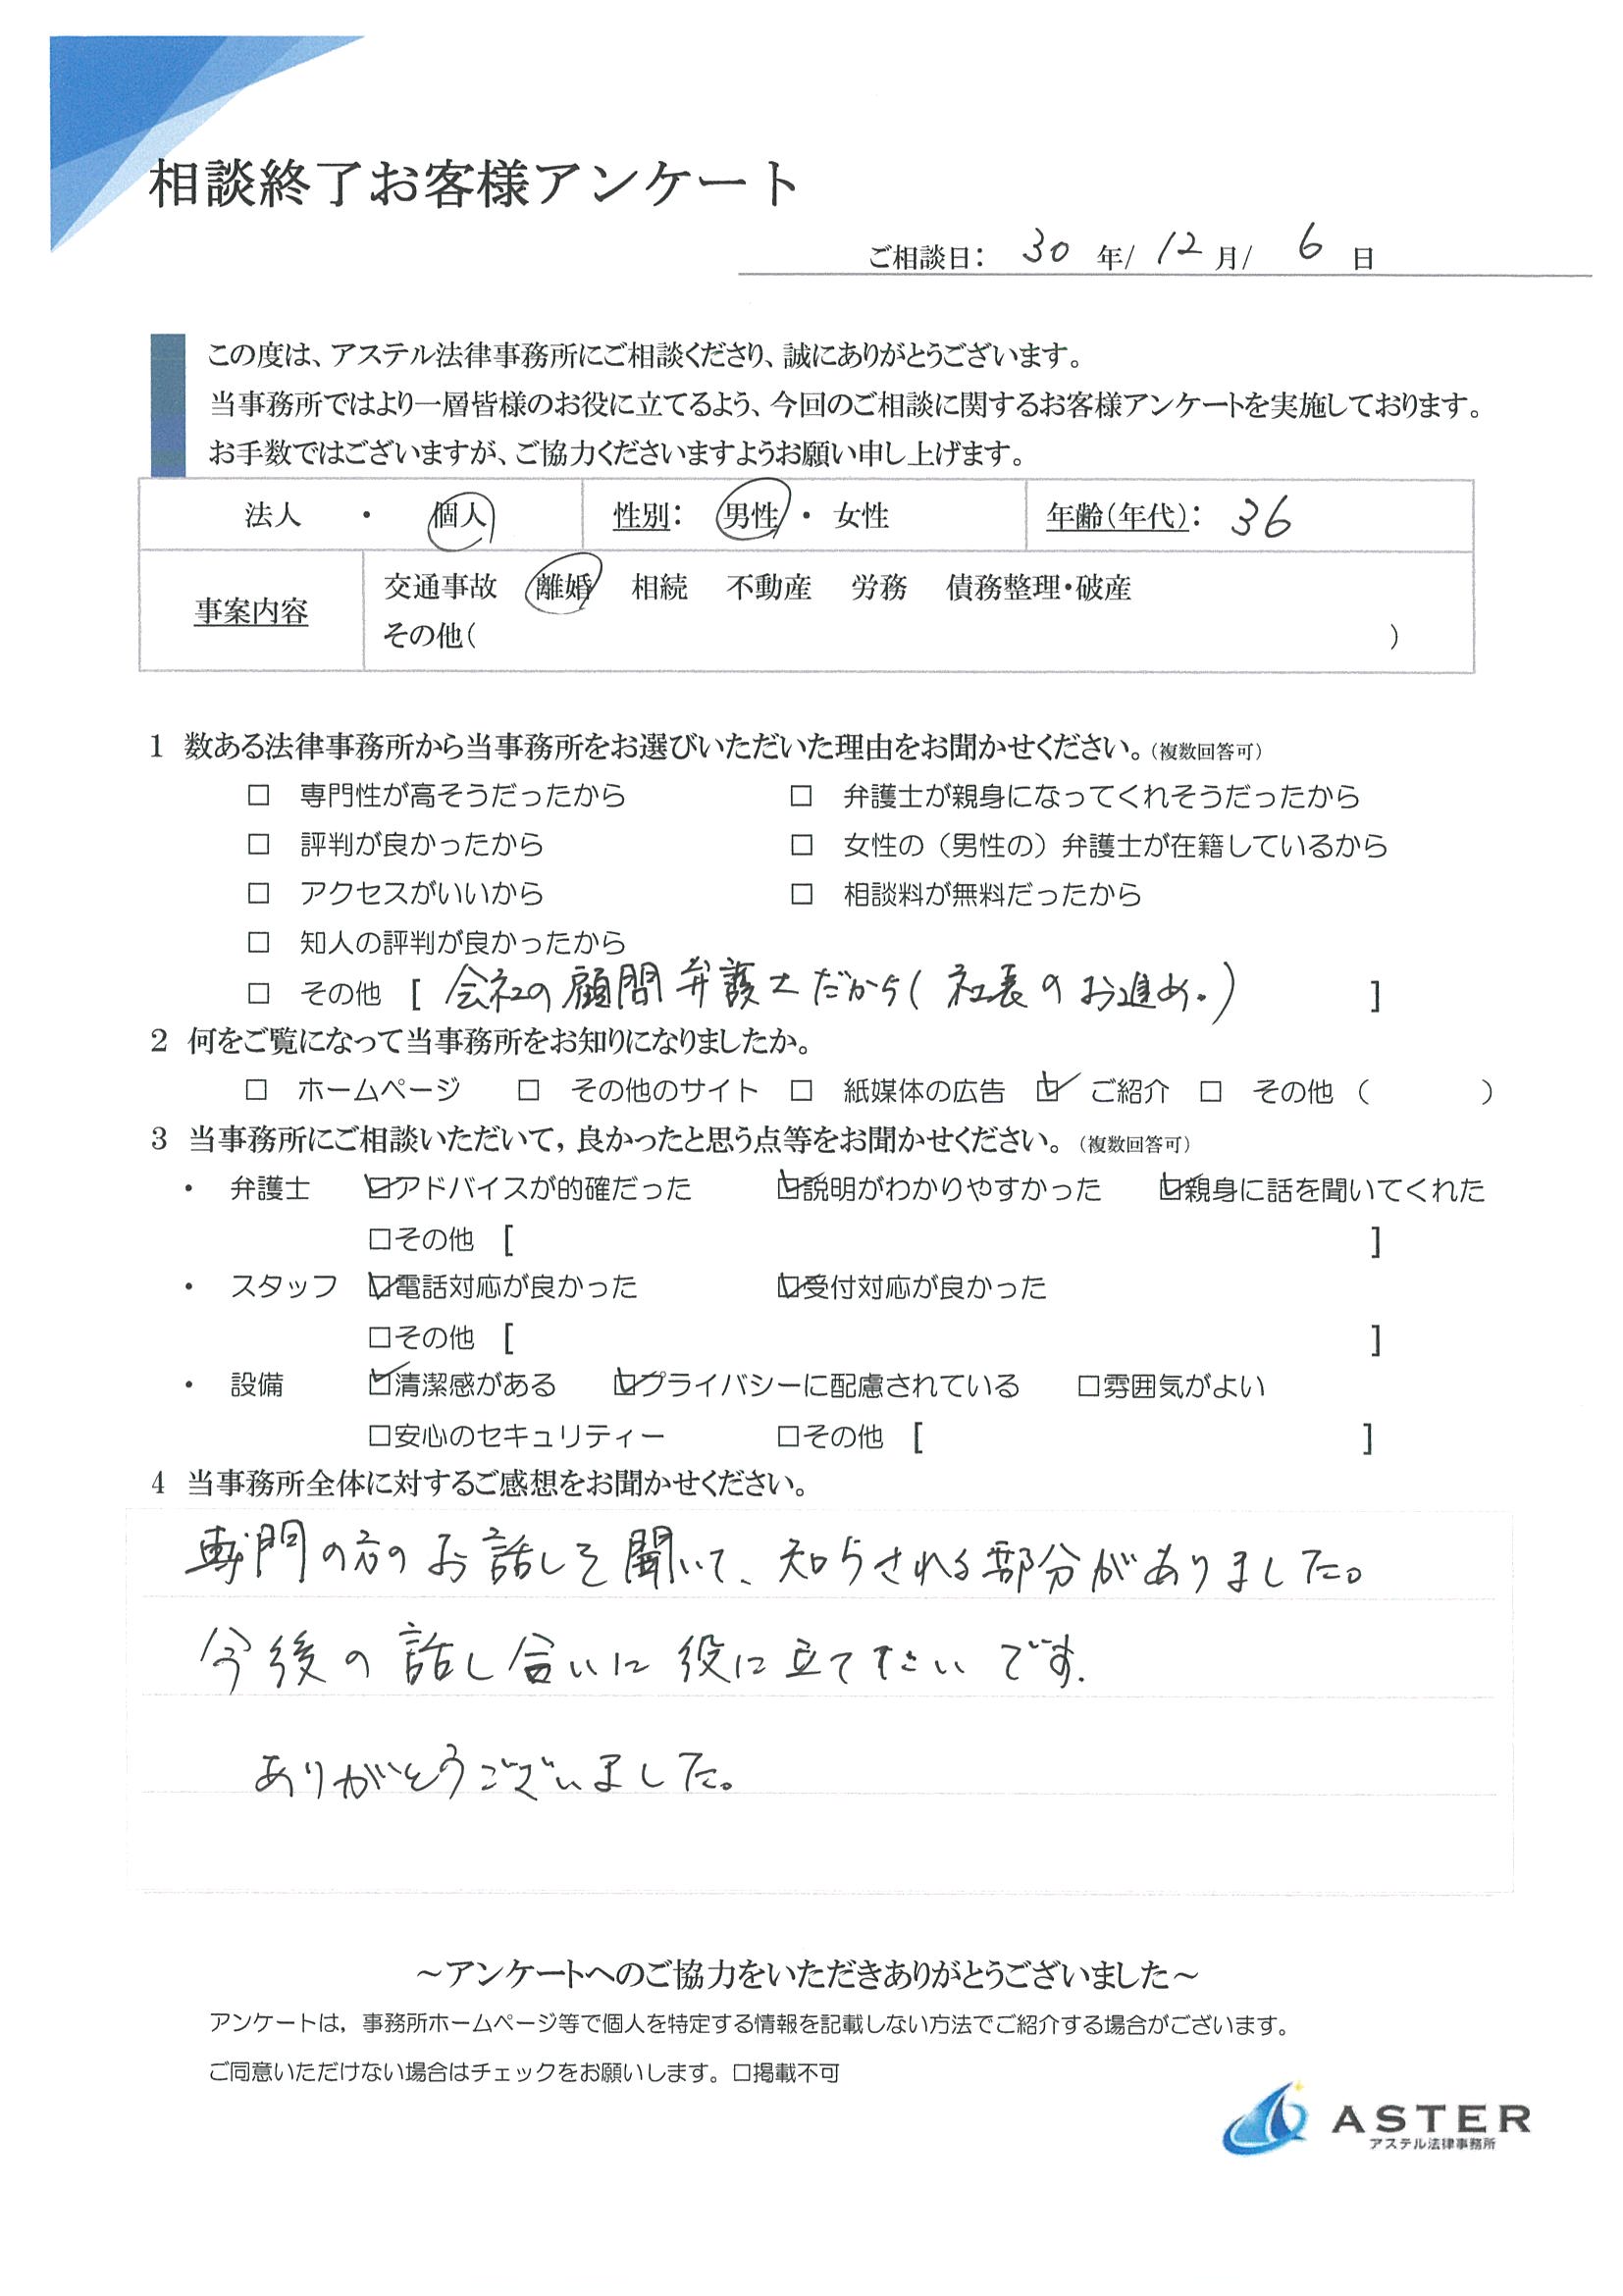 相談終了お客様アンケート
ご相談日： 30 年/ 12 月/ 6 日
この度は、アステル法律事務所にご相談くださり、誠にありがとうございます。
当事務所ではより一層皆様のお役に立てるよう、今回のご相談に関するお客様アンケートを実施しております。
お手数ではございますが、ご協力くださいますようお願い申し上げます。
法人 ・ 個人 性別： 男性 ・ 女性 年齢（年代）： 36
事案内容 交通事故 離婚 相続 不動産 労務 債務整理・破産
その他（ ）
1 数ある法律事務所から当事務所をお選びいただいた理由をお聞かせください。（複数回答可）
□ 専門性が高そうだったから □ 弁護士が親身になってくれそうだったから
□ 評判が良かったから □ 女性の（男性の）弁護士が在籍しているから
□ アクセスがいいから □ 相談料が無料だったから
□ 知人の評判が良かったから
□ その他 [ 会社の顧問弁護士だから（社長のお進め。） ]
2 何をご覧になって当事務所をお知りになりましたか。
□ ホームページ □ その他のサイト □ 紙媒体の広告 ☑ ご紹介 □ その他 （ ）
3 当事務所にご相談いただいて，良かったと思う点等をお聞かせください。（複数回答可）
・ 弁護士 ☑アドバイスが的確だった ☑説明がわかりやすかった ☑親身に話を聞いてくれた
□その他 [ ]
・ スタッフ ☑電話対応が良かった ☑受付対応が良かった
□その他 [ ]
・ 設備 ☑清潔感がある ☑プライバシーに配慮されている □雰囲気がよい
□安心のセキュリティー □その他 [ ]
4 当事務所全体に対するご感想をお聞かせください。
専門の方のお話しを聞いて、知らされる部分がありました。
今後の話し合いに役に立てたいです.
ありがとうございました。
～アンケートへのご協力をいただきありがとうございました～
アンケートは，事務所ホームページ等で個人を特定する情報を記載しない方法でご紹介する場合がございます。
ご同意いただけない場合はチェックをお願いします。□掲載不可
ASTER
アステル法律事務所